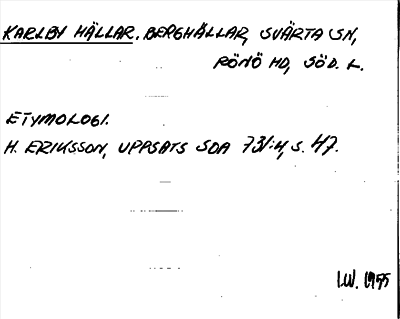 KARLBY HÄLLAR. BERGHÄLLAR, SVÄRTA SN,
RÖNÖ HD, SÖD. L.
ETYMOLOGI.
H. ERIKSSON, UPPSATS SOA 731:4, S. 47.
I.W. 1955